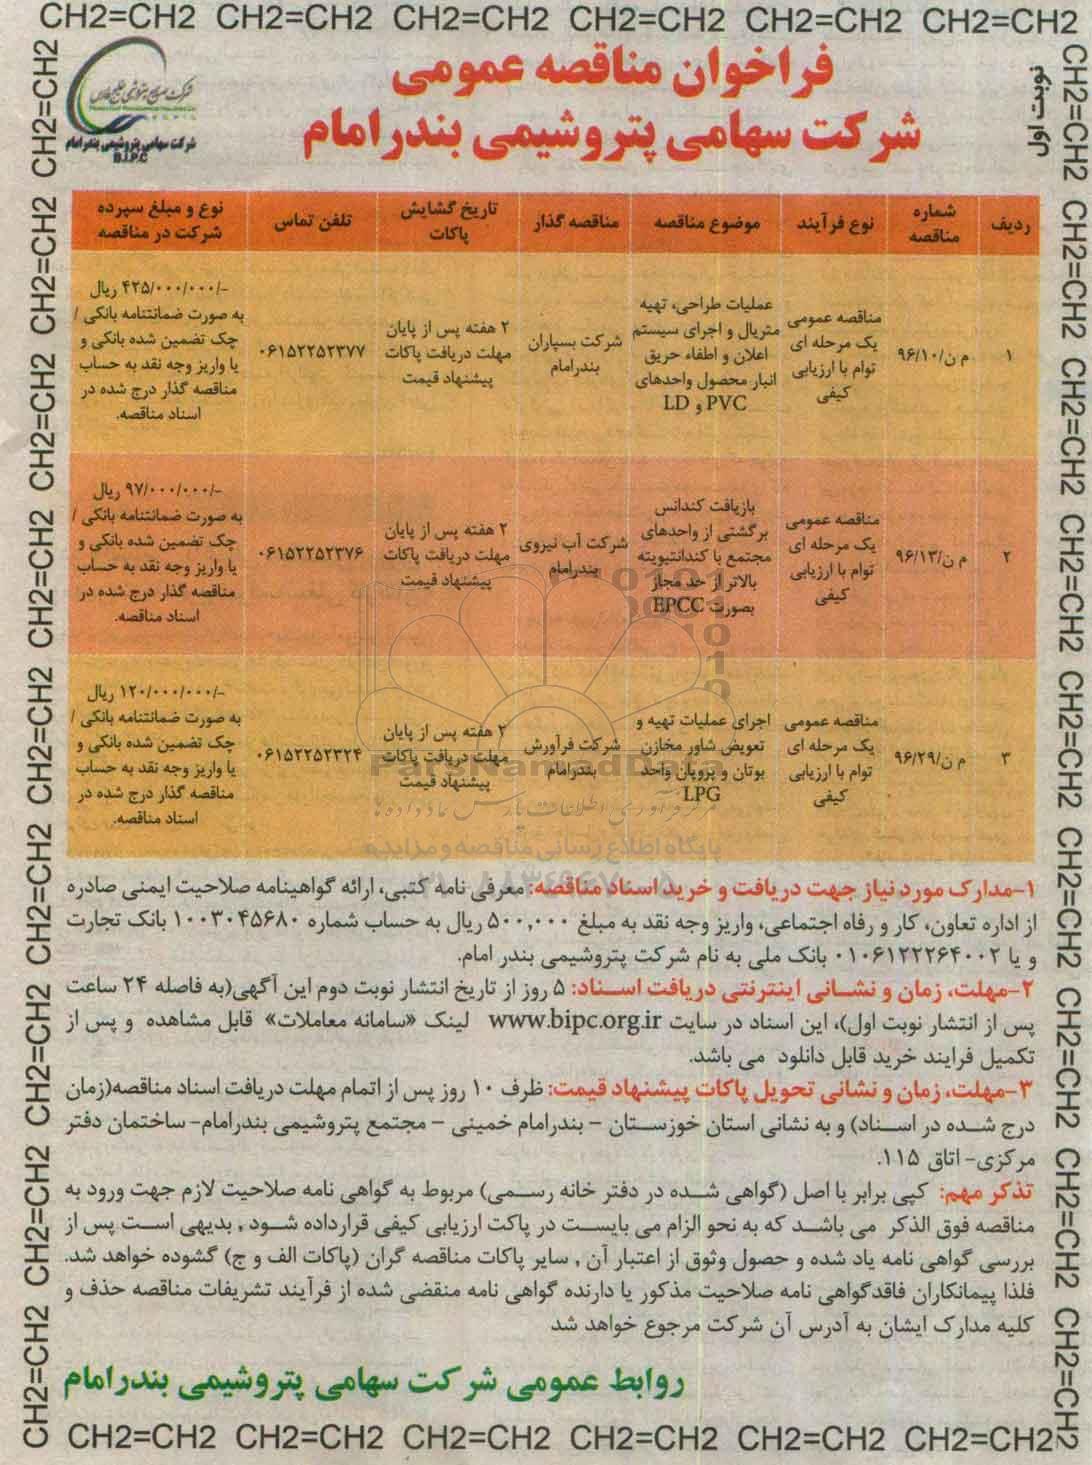 CH2=CH2 CH2=CH2 CH2=CH2 CH2=CH2 CH2=CH2 CH2=CH2
نوبت اول
فراخوان مناقصه عمومی
شرکت سهامی پتروشیمی بندرامام
شرکت سهامی پتروشیمی بندرامام
B.I.P.C
ردیف
شماره مناقصه
نوع فرآیند
موضوع مناقصه
مناقصه گذار
تاریخ گشایش پاکات
تلفن تماس
نوع و مبلغ سپرده شرکت در مناقصه
۱
م ن/۹۶/۱۰
مناقصه عمومی
یک مرحله ای
توام با ارزیابی
کیفی
عملیات طراحی، تهیه
متریال و اجرای سیستم
اعلان و اطفاء حریق
انبار محصول واحدهای
PVC و LD
شرکت بسپاران
بندرامام
۲ هفته پس از پایان
مهلت دریافت پاکات
پیشنهاد قیمت
۰۶۱۵۲۲۵۲۳۷۷
۴۲۵/۰۰۰/۰۰۰/- ریال
به صورت ضمانتنامه بانکی /
چک تضمین شده بانکی و
یا واریز وجه نقد به حساب
مناقصه گذار درج شده در
اسناد مناقصه.
۲
م ن/۹۶/۱۳
مناقصه عمومی
یک مرحله ای
توام با ارزیابی
کیفی
بازیافت کندانس
برگشتی از واحدهای
مجتمع با کندانتیویته
بالاتر از حد مجاز
بصورت EPCC
شرکت آب نیروی
بندرامام
۲ هفته پس از پایان
مهلت دریافت پاکات
پیشنهاد قیمت
۰۶۱۵۲۲۵۲۳۷۶
۹۷/۰۰۰/۰۰۰/- ریال
به صورت ضمانتنامه بانکی /
چک تضمین شده بانکی و
یا واریز وجه نقد به حساب
مناقصه گذار درج شده در
اسناد مناقصه.
۳
م ن/۹۶/۲۹
مناقصه عمومی
یک مرحله ای
توام با ارزیابی
کیفی
اجرای عملیات تهیه و
تعویض شاور مخازن
بوتان و پروپان واحد
LPG
شرکت فرآورش
بندرامام
۲ هفته پس از پایان
مهلت دریافت پاکات
پیشنهاد قیمت
۰۶۱۵۲۲۵۲۳۲۴
۱۲۰/۰۰۰/۰۰۰/- ریال
به صورت ضمانتنامه بانکی /
چک تضمین شده بانکی و
یا واریز وجه نقد به حساب
مناقصه گذار درج شده در
اسناد مناقصه.
ParsNamadData
مرکز فرآوری اطلاعات پارس نماد داده ها
پایگاه اطلاع رسانی مناقصه و مزایده
۱-مدارک مورد نیاز جهت دریافت و خرید اسناد مناقصه: معرفی نامه کتبی، ارائه گواهینامه صلاحیت ایمنی صادره
از اداره تعاون، کار و رفاه اجتماعی، واریز وجه نقد به مبلغ ۵۰۰,۰۰۰ ریال به حساب شماره ۱۰۰۳۰۴۵۶۸۰ بانک تجارت
و یا ۰۱۰۶۱۲۲۲۶۴۰۰۲ بانک ملی به نام شرکت پتروشیمی بندر امام.
۲-مهلت، زمان و نشانی اینترنتی دریافت اسناد: ۵ روز از تاریخ انتشار نوبت دوم این آگهی(به فاصله ۲۴ ساعت
پس از انتشار نوبت اول)، این اسناد در سایت www.bipc.org.ir لینک «سامانه معاملات» قابل مشاهده و پس از
تکمیل فرایند خرید قابل دانلود می باشد.
۳-مهلت، زمان و نشانی تحویل پاکات پیشنهاد قیمت: ظرف ۱۰ روز پس از اتمام مهلت دریافت اسناد مناقصه(زمان
درج شده در اسناد) و به نشانی استان خوزستان - بندرامام خمینی - مجتمع پتروشیمی بندرامام- ساختمان دفتر
مرکزی- اتاق ۱۱۵.
تذکر مهم: کپی برابر با اصل (گواهی شده در دفتر خانه رسمی) مربوط به گواهی نامه صلاحیت لازم جهت ورود به
مناقصه فوق الذکر می باشد که به نحو الزام می بایست در پاکت ارزیابی کیفی قرارداده شود , بدیهی است پس از
بررسی گواهی نامه یاد شده و حصول وثوق از اعتبار آن , سایر پاکات مناقصه گران (پاکات الف و ج) گشوده خواهد شد.
فلذا پیمانکاران فاقدگواهی نامه صلاحیت مذکور یا دارنده گواهی نامه منقضی شده از فرآیند تشریفات مناقصه حذف و
کلیه مدارک ایشان به آدرس آن شرکت مرجوع خواهد شد
روابط عمومی شرکت سهامی پتروشیمی بندرامام
CH2=CH2 CH2=CH2 CH2=CH2 CH2=CH2 CH2=CH2 CH2=CH2
CH2=CH2 CH2=CH2 CH2=CH2 CH2=CH2 CH2=CH2 CH2=CH2 CH2=CH2 CH2=CH2 CH2=CH2
CH2=CH2 CH2=CH2 CH2=CH2 CH2=CH2 CH2=CH2 CH2=CH2 CH2=CH2 CH2=CH2 CH2=CH2